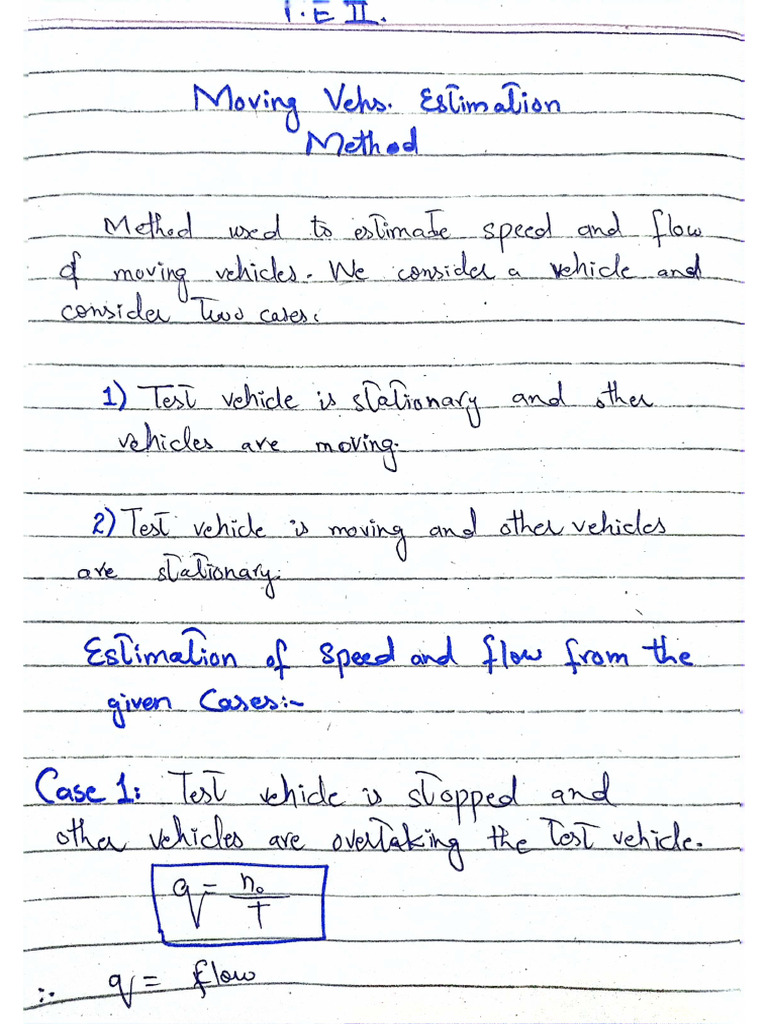 T.E II.
Moving Vehs. Estimation
Method
Method used to estimate speed and flow
of moving vehicles. We consider a vehicle and
consider Two cases.
1) Test vehicle is stationary and other
vehicles are moving.
2) Test vehicle is moving and other vehicles
are stationary.
Estimation of speed and flow from the
given Cases:-
Case 1: Test vehicle is stopped and
other vehicles are overtaking the test vehicle.
q = n₀/T
∴ q = flow